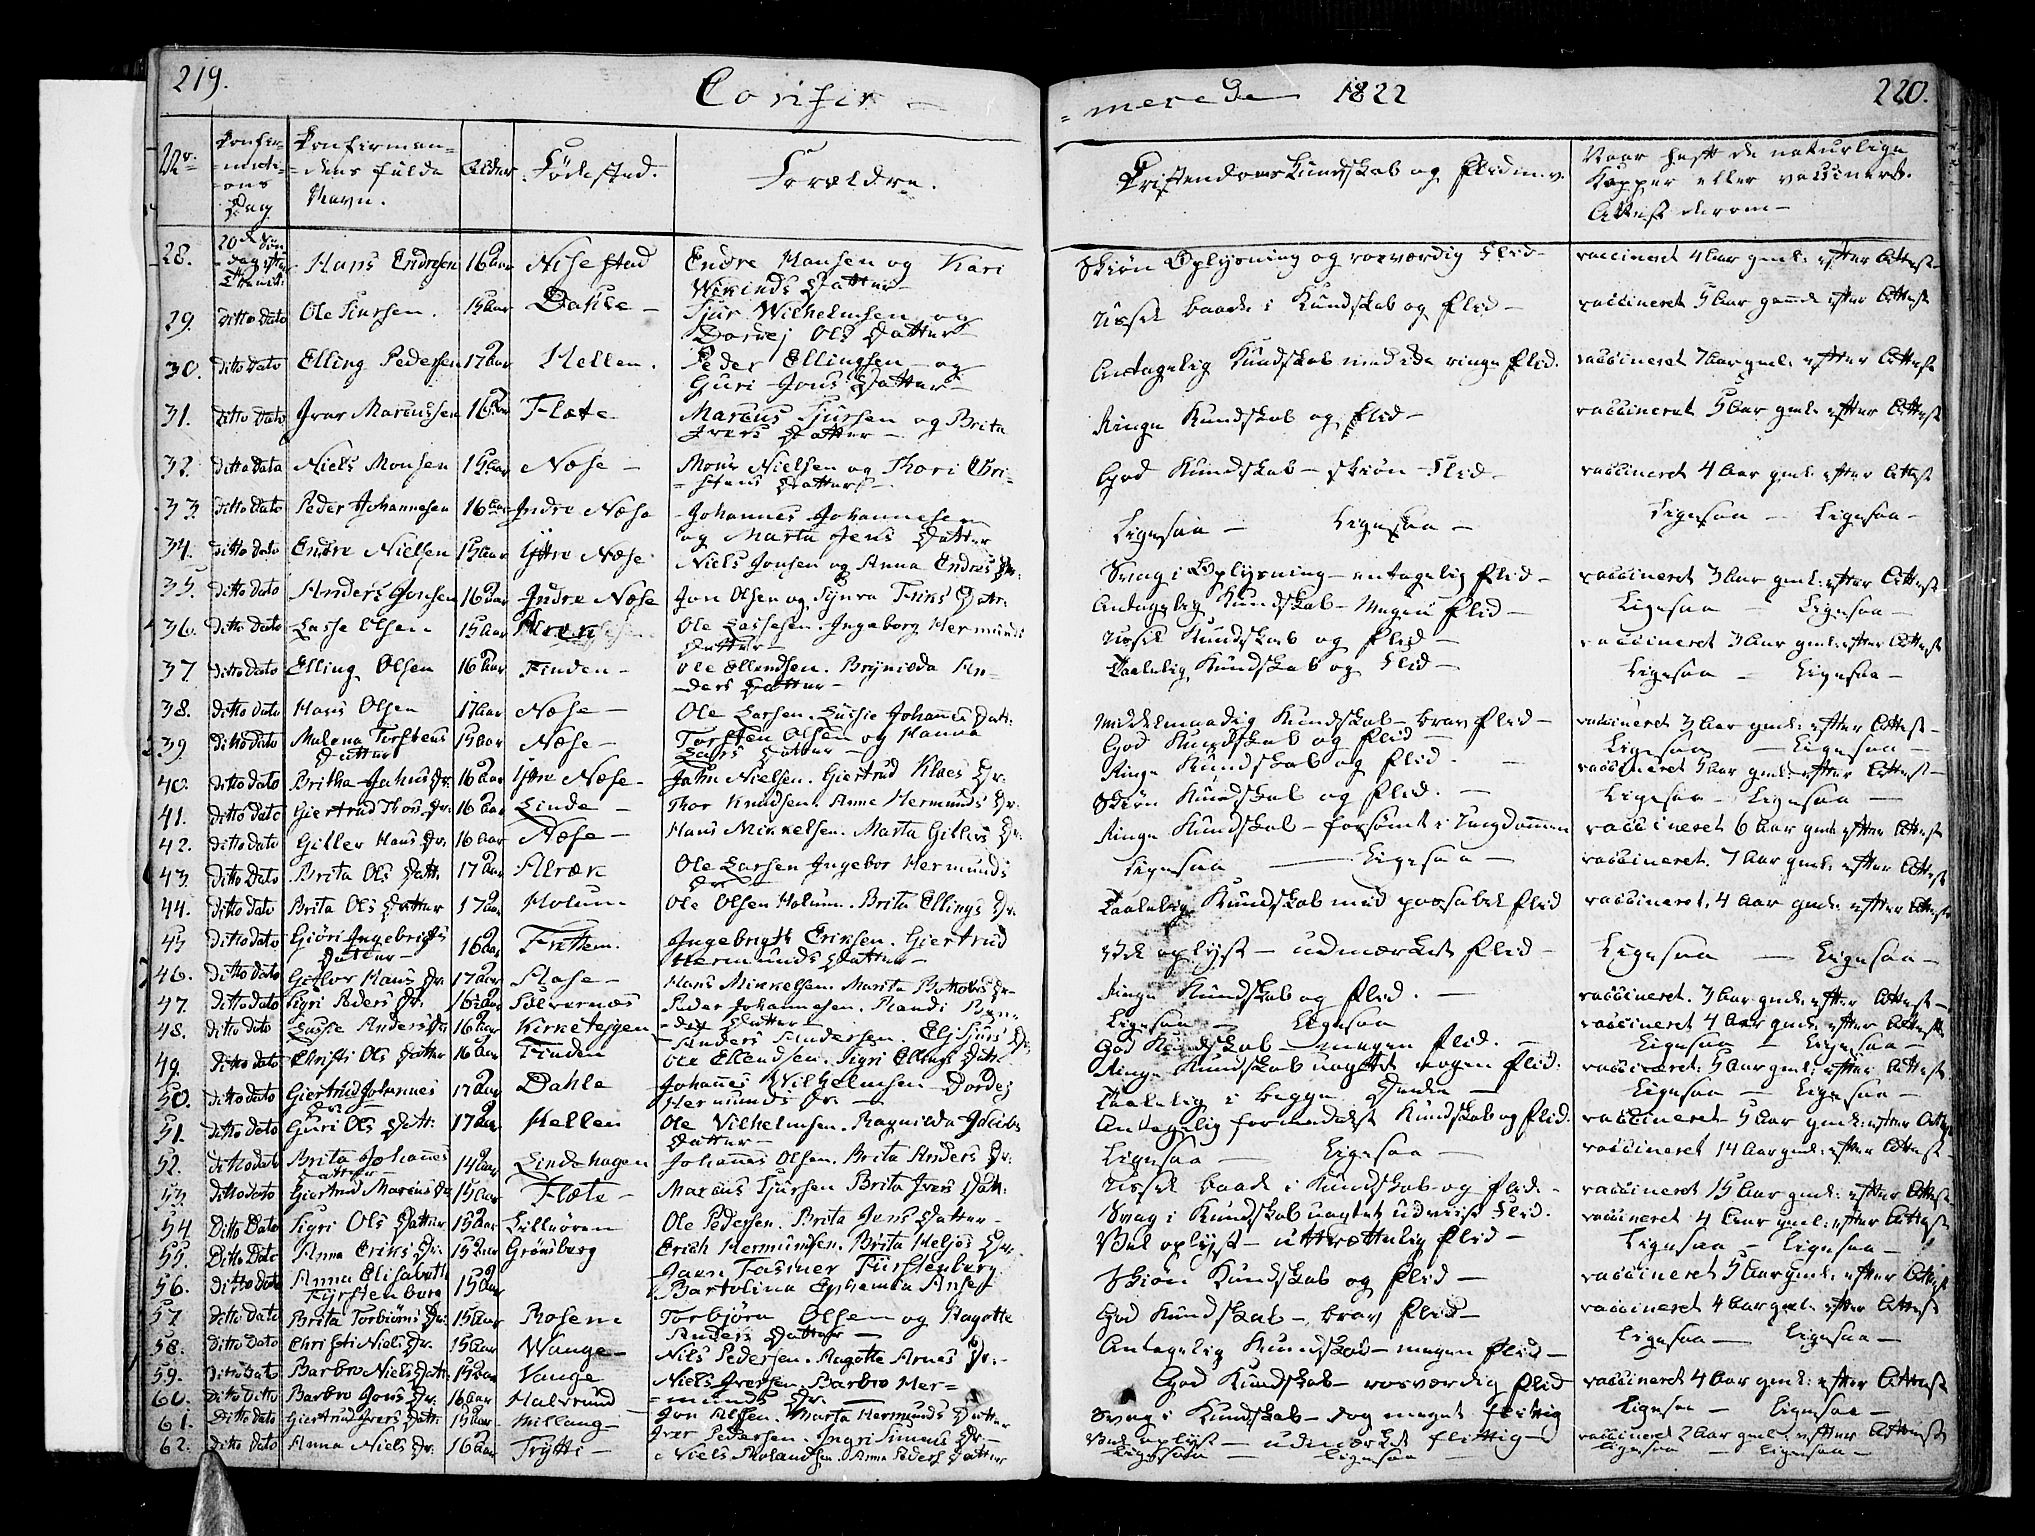 219.
Confir-
Nr.
Confir-
mati-
ons
Dag
Confirman-
dens fulde
Navn.
Alder
Fødested.
Forældre.
28. 20de Søn Hans Endresen 16 Aar Nisestad Endre Hansen og Kari
dag efter
Trinit: Datter-
29. Ditto Dato Ole Siursen. 15 Aar Dahle- Sjur Wilhelmsen og
Dordej Ols Datter-
30. Ditto Dato Elling Pedersen 17 Aar Hellen. Peder Ellingsen - og
Guri Jons Datter-
31. Ditto Dato Ivar Marcussen 16 Aar Flæte Marcus Sjursen og Brita
Ivers Datter-
32. Ditto Dato Niels Monsen 15 Aar Næse- Mons Nielsen og Thori Chri-
-stens Datter-
33. Ditto Dato Peder Johannesen 16 Aar Indre Næse Johannes Johannesen
og Marta Jens Datter
34. Ditto Dato Endre Nielsen 15 Aar Yttre Næse Niels Jonsen og Anna Endres Dr:
35. Ditto Dato Anders Jonsen 16 Aar Indre Næse Jon Olsen og Synva Datr:
36. Ditto Dato Lasse Olsen 15 Aar Ole Lassesen. Ingeborg Hermunds
Datter-
37 Ditto Dato Elling Olsen 16 Aar Finden- Ole Ellendsen. Brynilda An-
ders Datter-
38. Ditto Dato Hans Olsen 17 Aar Næse- Ole Larsen. Lussie Johannes Dat:
39 Ditto Dato Malena Torstens 15 Aar Næse- Torsten Olsen og Hanna
Datter Lars Datter-
40. Ditto Dato Britha Jahns Dr. 16 Aar Yttre Næse- Jahn Nielsen. Giertrud Klaes Dr:
41. Ditto Dato Giertrud Thors Dr: 16 Aar Linde- Thor Knudsen. Anne Hermunds Dr:
42. Ditto Dato Gitler Hans Dr: 16 Aar Næse- Hans Mikkelsen. Marta Gitlers Dr:
43. Ditto Dato Brita Ols Datt: 17 Aar Alræk Ole Larsen Ingebor Hermunds
Dr
44. Ditto Dato Brita Ols Datter 17 Aar Holum- Ole Olsen Holum. Brita Ellings Dr:
45 Ditto Dato Giöri Ingebrigts 16 Aar Frettem. Ingebrigt Eriksen. Giertrud
Datter- Hermunds Datter-
46. Ditto Dato Hans Dr: 17 Aar Aase- Hans Mikkelsen. Marita Botolvs Dr-
47. Ditto Dato Sigri Peders Dr. 16 Aar Sælvernæs Peder Johannesen. Randi Ben-
-dix Datter-
48. Ditto Dato Lussie Anders Dr 16 Aar Kirketeigen Anders Andersen. Eli Siurs Dr
49. Ditto Dato Christi Ols Datter 16 Aar Finden Ole Ellendsen. Sigri Ellings Datr
50. Ditto Dato Giertrud Johannes 17 Aar Dahle Johannes Wilhelmsen - Dordej
Dr: - Hermunds Dr: -
51. Ditto Dato Guri Ols Datt: 17 Aar Hellen Ole Vilhelmsen. Ragnilda Jacobs
Datter-
52. Ditto Dato Brita Johannes 14 Aar Lindehagen Johannes Olsen. Brita Anders Dr:
Datter-
53 Ditto Dato Giertrud Marcus Dr 15 Aar Flæte- Marcus Sjursen Brita Ivers Datt:
54 Ditto Dato Sigri Ols Datter 15 Aar Lilleören Ole Pedersen. Brita Jens Datter-
55. Ditto Dato Anna Eriks Dr: 15 Aar Grønsberg Erich Hermunsen. Brita Heljes Dr.
56. Ditto Dato Anna Elisabeth 15 Aar Fasmer Fürstenberg
Fyrstenborg Bartolina Ephemia
57 Ditto Dato Brita Torbiörns Dr: 15 Aar Rosene Torbjörn Olsen og Magotte
Anders Datter-
58. Ditto Dato Christi Niels Dr. 15 Aar Wange- Nils Pedersen. Magotte Arnes Dr:-
59. Ditto Dato Barbro Niels Datt: 15 Aar Vange Niels Iversen. Barbro Her-
=munds Dr.
60. Ditto Ditto Barbro Jons Dr: 16 Aar Jon Marta Hermunds Datter
61. Ditto Dato Giertrud Ivers Datt: 15 Aar Millang- Iver Pedersen. Ingri Simens Dr:-
62. Ditto Dato Anna Niels Dr. 16 Aar Trytti- Niels Rolandsen. Anna Peders Datter
=merede 1822
220.
Kristendoms Kundskab og Flid m.v.
Naar haft de naturlige
Kopper eller vaccineret.
Attest derom-
Skiøn Oplysning og rosværdig Flid- vaccineret 4 Aar gml: efter Attest-
Ussel baade i Kundskab og Flid- vaccineret 5 Aar gamle efter Attest
Antagelig Kundskab med ringe Flid. vaccineret 7 Aar gml: efter Attest
Ringe Kundskab og Flid- vaccineret 5 Aar gml: efter Attest
God Kundskab - skiøn Flid- vaccineret 4 Aar gml: efter Attest
Ligesaa - Ligesaa - Ligesaa - Ligesaa-
Svag i Oplysning - antagelig Flid- vaccineret 3 Aar gml: efter Attest
Antagelig Kundskab - Megen Flid- Ligesaa - Ligesaa-
Ussel Kundskab og Flid- vaccineret 3 Aar gml: efter Attest
Taalelig Kundskab og Flid- Ligesaa - Ligesaa-
Middelmaadig Kundskab - brav Flid- vaccineret 3 Aar gml: efter Attest-
God Kundskab og Flid- Ligesaa - Ligesaa-
Ringe Kundskab og Flid. - vaccineret 5 Aar gml: efter Attest-
Skiøn Kundskab og Flid. - Ligesaa - Ligesaa-
Ringe Kundskab - forsømt i Ungdommen vaccineret 6 Aar gml: efter Attest
Ligesaa - Ligesaa- vaccineret. 7 Aar gml: efter Attest
Taalelig Kundskab med passabel Flid vaccineret, 4 Aar gml: efter Attest
Vel oplyst - udmærket Flid- Ligesaa - Ligesaa-
Ringe Kundskab og Flid. - vaccineret. 3 Aar gml: efter Attest-
Ligesaa - Ligesaa vaccineret 4 Aar gml: efter Attest
God Kundskab - megen Flid. - Ligesaa - Ligesaa-
Ringe Kundskab uagtet nogen Flid. vaccineret: 5 Aar gml: efter Attest
Taalelig i begge Dele- Ligesaa - Ligesaa-
Antagelig formedelst Kundskab og Flid. vaccineret - 5 Aar gml: efter Attest
Ligesaa - Ligesaa - vaccineret 14 Aar gml: efter Attest-
Ussel baade i Kundskab og Flid. - vaccineret 15 Aar gml: efter Attest
Svag i Kundskab uagtet udviist Flid. vaccineret 4 Aar gml: efter Attest
Vel oplyst - utrættelig Flid- Ligesaa - Ligesaa-
Skiøn Kundskab og Flid- vaccineret 5 Aar gml: efter Attest
God Kundskab - brav Flid- vaccineret 4 Aar gml: efter Attest
Antagelig Kundskab - megen Flid- Ligesaa - Ligesaa-
God Kundskab - rosværdig Flid vaccineret 4 Aar gml: efter Attest
Svag i Kundskab - dog meget flittig Ligesaa - Ligesaa-
Vel oplyst - udmærket flittig- vaccineret 2 Aar gml: efter Attest
Ligesaa - Ligesaa - Ligesaa - Ligesaa-